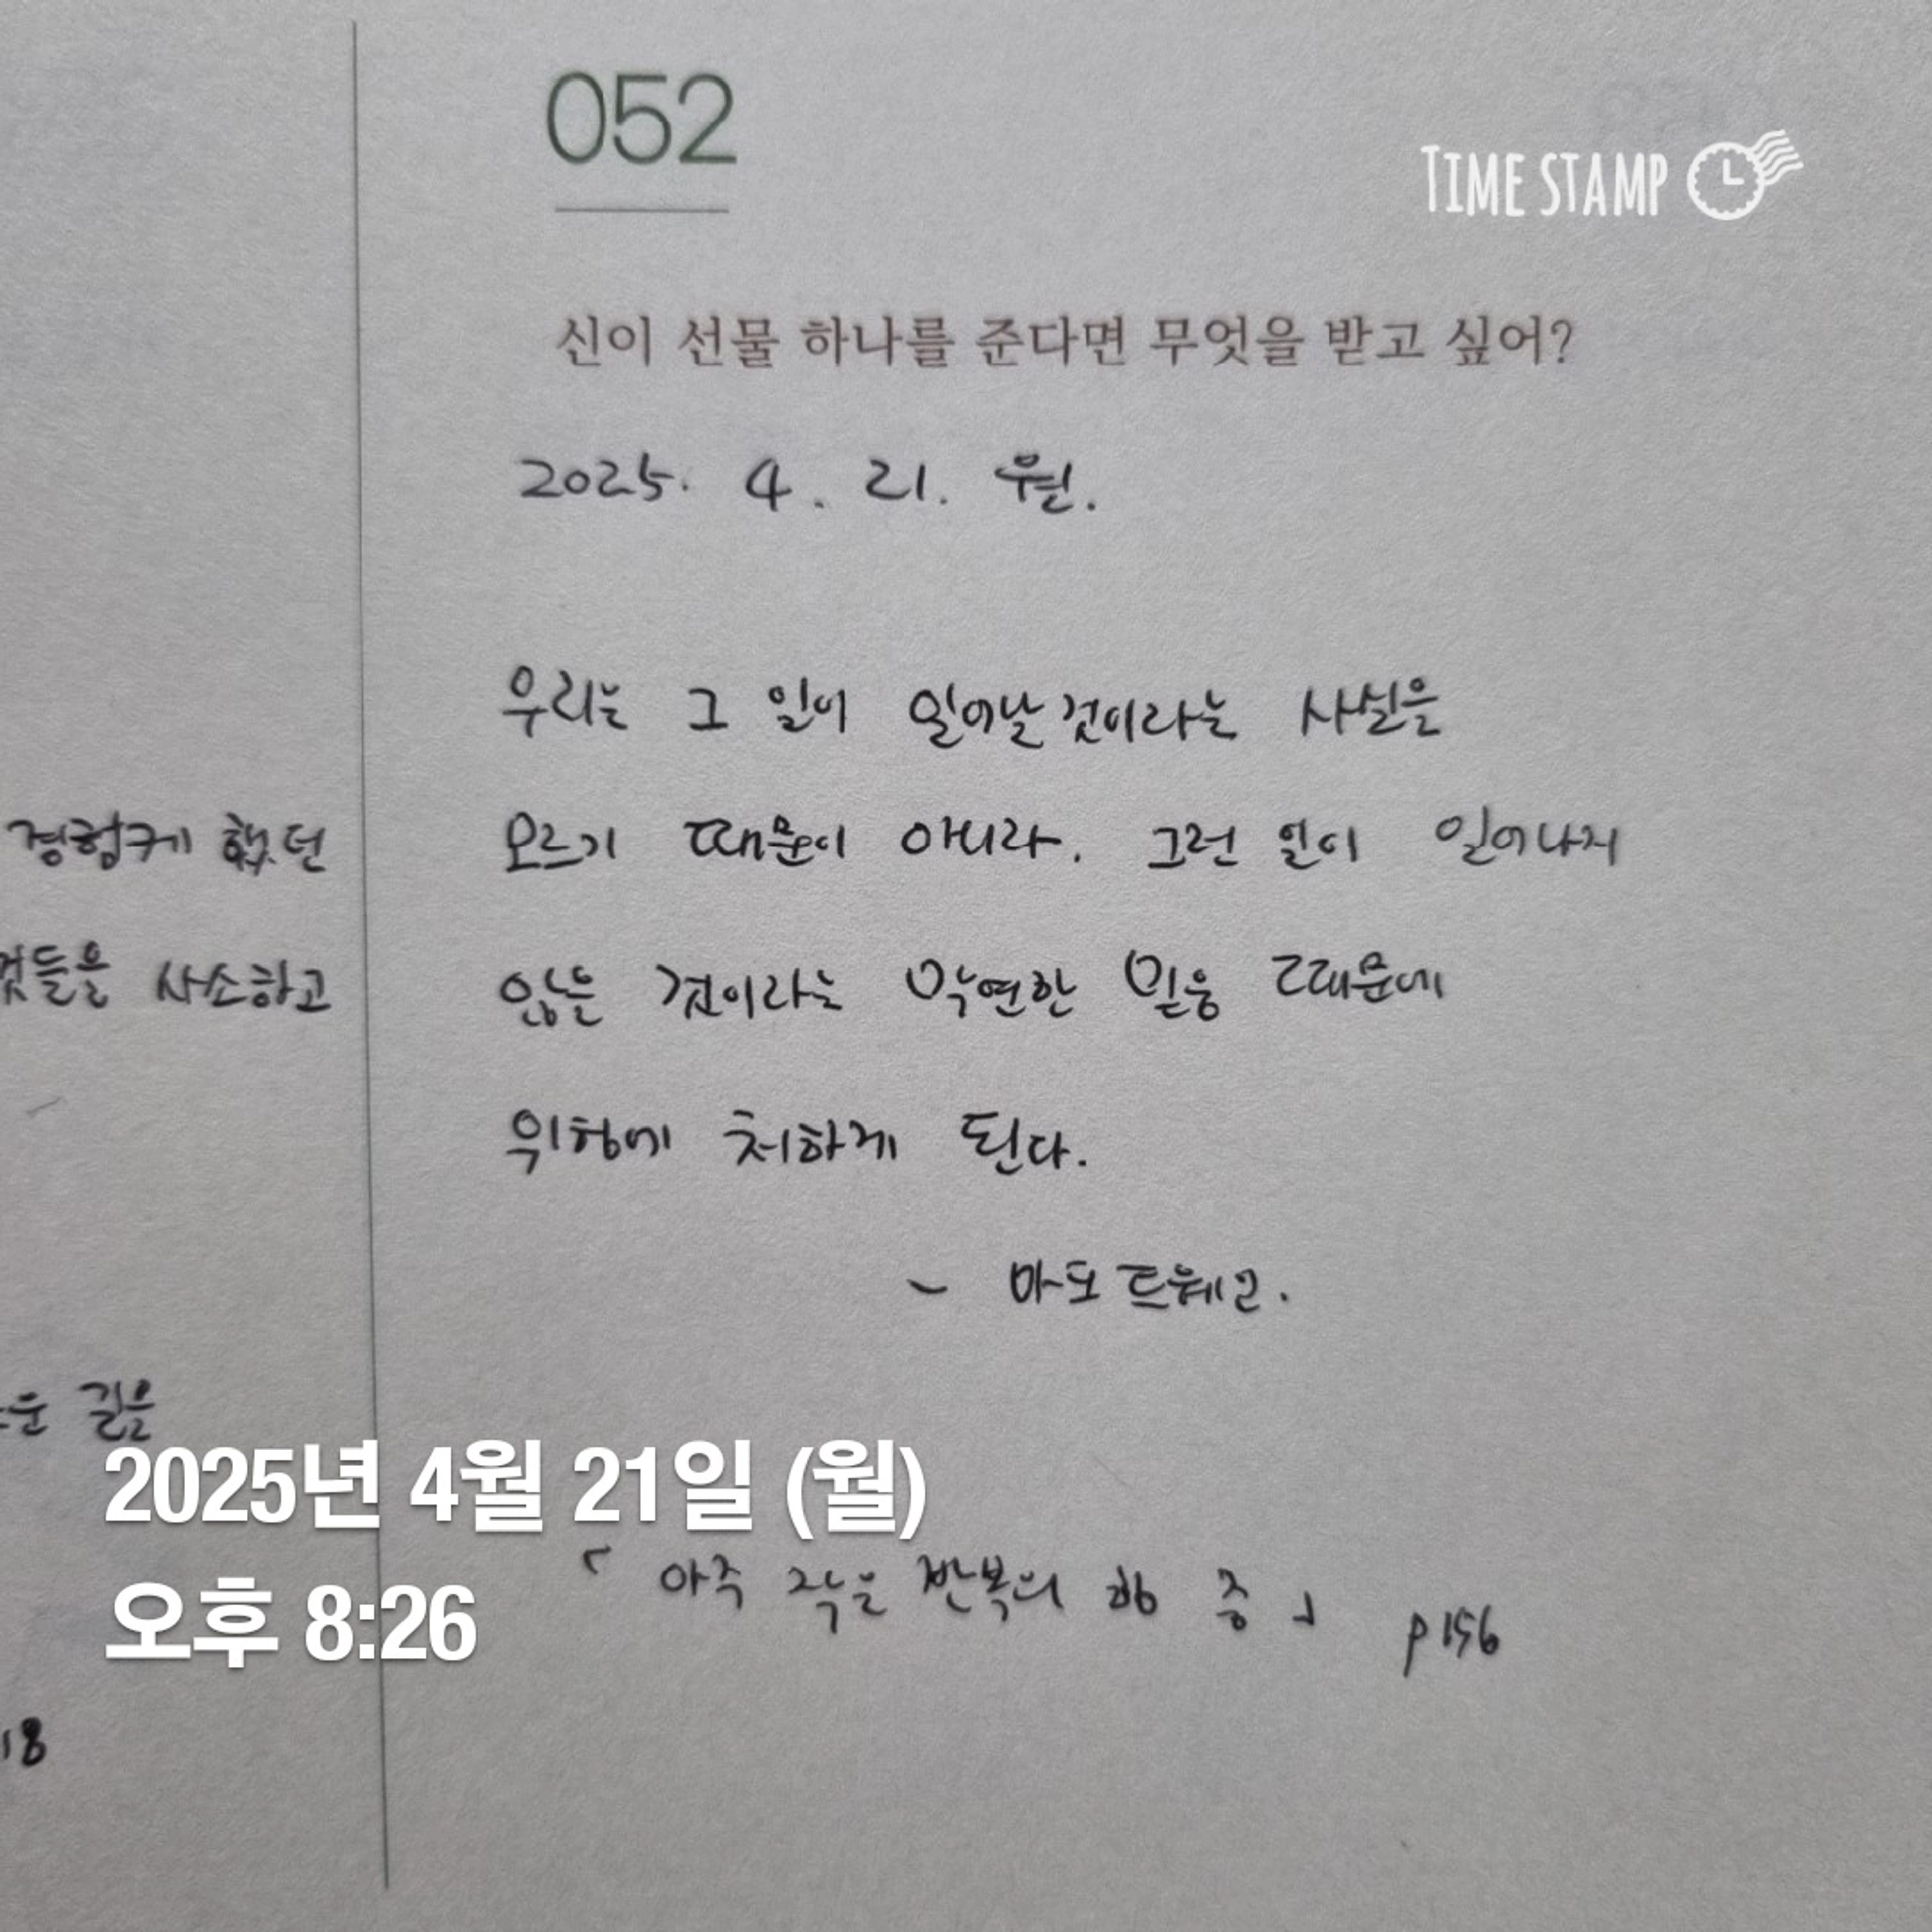 052
TIME STAMP
신이 선물 하나를 준다면 무엇을 받고 싶어?
2025. 4. 21. 월.
우리는 그 일이 일어날 것이라는 사실을
모르기 때문이 아니라. 그런 일이 일어나지
않을 것이라는 막연한 믿음 때문에
위험에 처하게 된다.
- 마크 트웨인.
「 아주 작은 반복의 힘 중 」 p156
경험케 했던
것들을 사소하고
길을
18
2025년 4월 21일 (월)
오후 8:26